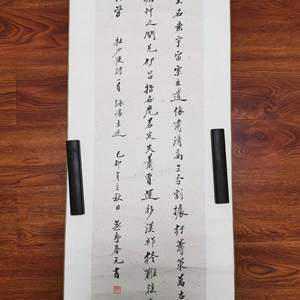 名垂宇宙宗臣遺像肅清高三分割據紆籌策萬古
仲之間見伊呂指揮若定失蕭曹運移漢祚終難復
勞 杜少陵詩一首 詠懷古迹 己卯年之秋日 春元書